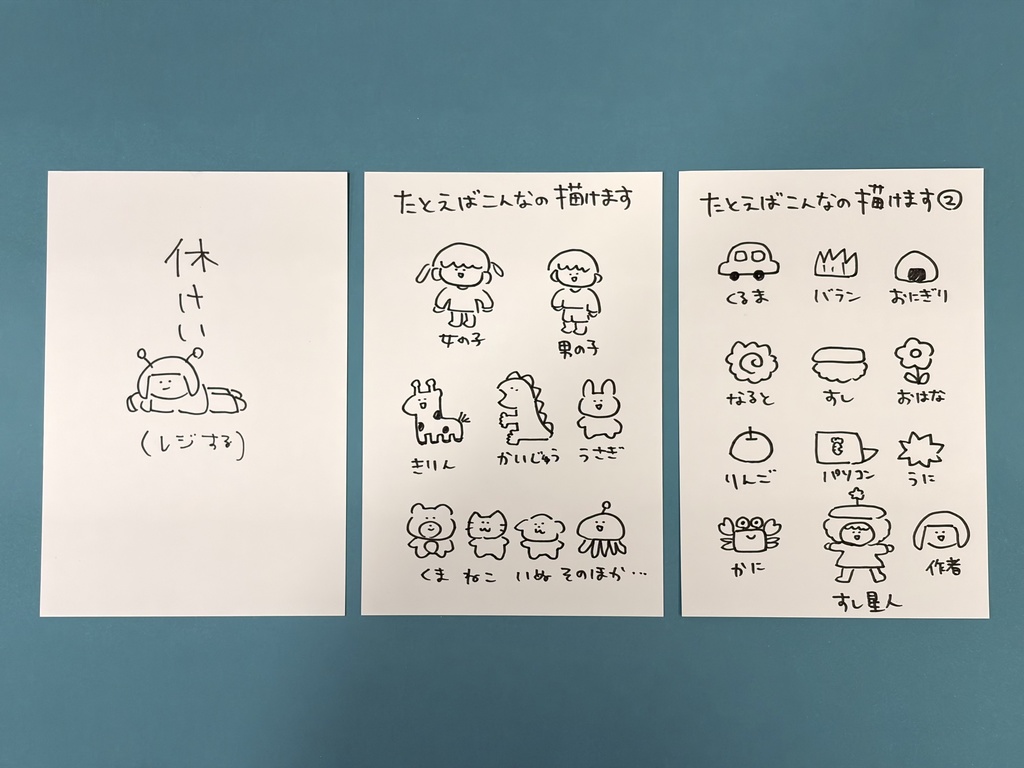 休けい
(レジする)
たとえばこんなの描けます
女の子
男の子
きりん
かいじゅう
うさぎ
くま
ねこ
いぬ
そのほか…
たとえばこんなの描けます②
くるま
バラン
おにぎり
なると
すし
おはな
りんご
パソコン
うに
かに
すし星人
作者